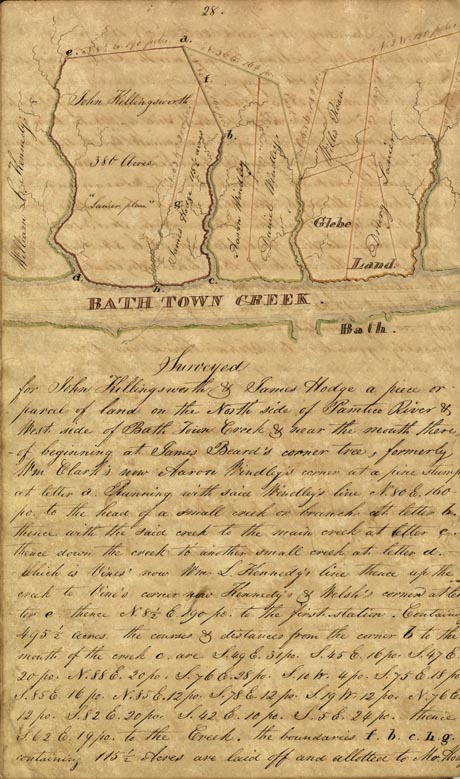 28.
a.
e.
N. 8½ E. 190 poles
f.
John Killingsworth
380 Acres
b.
William L. Kennedy's
James Hodge 115½ acres
g.
Aaron Windley
Daniel Windley's
Glebe
Land
d.
h.
c.
BATH TOWN CREEK.
Bath.
Surveyed
for John Killingsworth & James Hodge a piece or
parcel of land on the North side of Pamlico River &
West side of Bath Town Creek & near the mouth there,
of beginning at James Beard's corner tree, formerly
Wm Clark's now Aaron Windley's corner at a pine stump
at letter a. Running with said Windley's line N. 80 E. 160
po. to the head of a small creek or branch at letter b.
thence with the said creek to the main creek at letter c.
thence down the creek to another small creek at letter d.
which is Vines' now Wm L. Kennedy's line thence up the
creek to Vine's corner now Kennedy's & Welsh's corner at let
tor e thence N. 8½ E. 190 po. to the first station. Containing
495½ acres. the courses & distances from the corner b to the
mouth of the creek c. are S. 49 E. 31 po. S. 45 E. 16 po. S. 47 E.
20 po. N. 88 E. 20 po. S. 76 E. 28 po. S. 10 W. 4 po. S. 75 E. 18 po
S. 85 E. 16 po. N. 85 E. 12 po. S. 78 E. 12 po. S. 19 W. 12 po. N. 76 E.
12 po. S. 82 E. 20 po. S. 42 E. 10 po. S. 5 E. 24 po. thence
S. 62 E. 19 po. to the Creek. the boundaries f. b. c. h. g.
containing 115½ Acres are laid off and allotted to Mr.